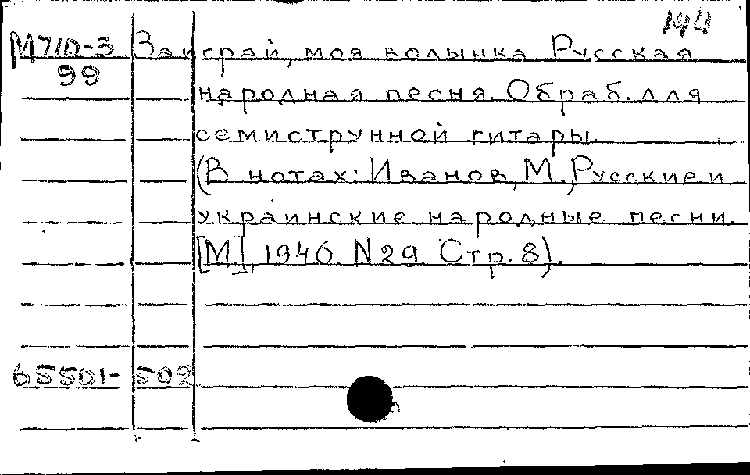 194
М710-3 Заиграй, моя волынка Русская
99 народная песня. Обраб. для
семиструнной гитары.
(В нотах: Иванов, М. Русские и
украинские народные песни.
[М], 1946. N29. Стр. 8).
65501-502